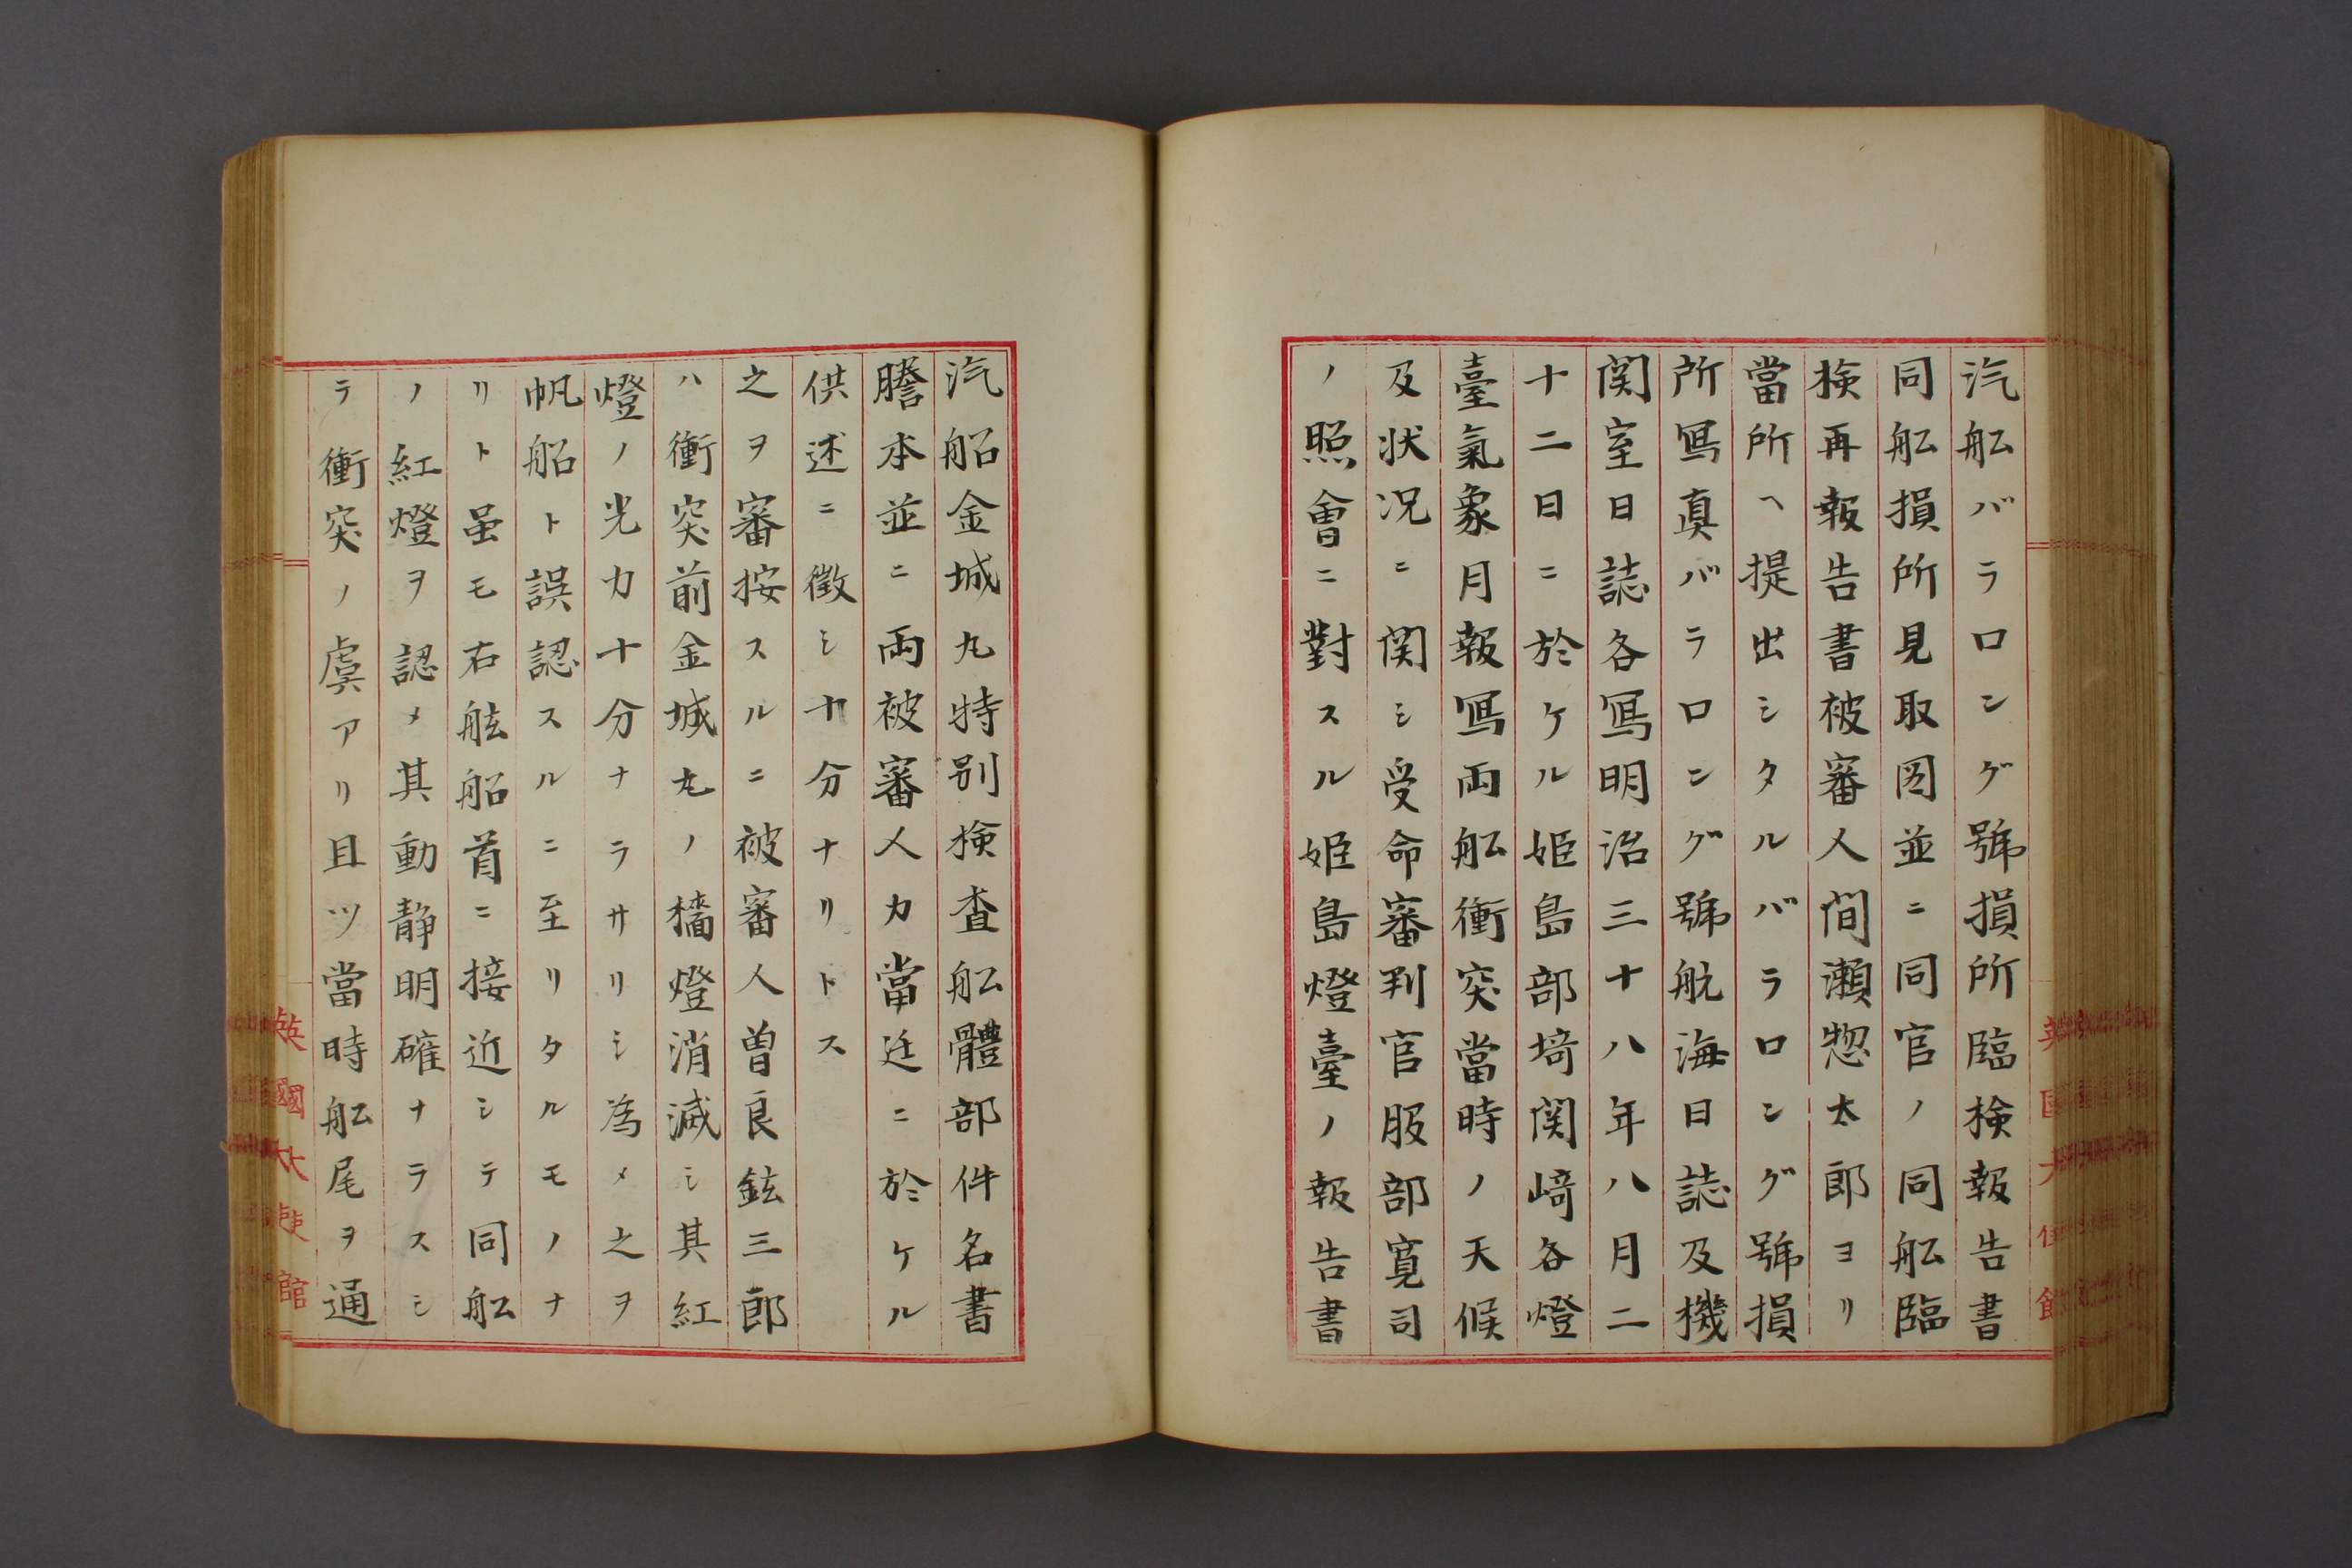 汽舩バラロング號損所臨檢報告書
同舩損所見取図並ニ同官ノ同舩臨
検再報告書被審人間瀬惣太郎ヨリ
當所ヘ提出シタルバラロング號損
所冩真バラロング號航海日誌及機
関室日誌各冩明治三十八年八月二
十二日ニ於ケル姫島部埼関﨑各燈
臺氣象月報冩両舩衝突當時ノ天候
及状况ニ関シ受命審判官服部寛司
ノ照會ニ對スル姫島燈臺ノ報告書
汽船金城丸特別検査舩體部件名書
謄本並ニ両被審人カ當廷ニ於ケル
供述ニ徴シ十分ナリトス
之ヲ審按スルニ被審人曽良鉉三郎
ハ衝突前金城丸ノ檣燈消滅シ其紅
燈ノ光力十分ナラサリシ為メ之ヲ
帆船ト誤認スルニ至リタルモノナ
リト虽モ右舷船首ニ接近シテ同舩
ノ紅燈ヲ認メ其動静明確ナラスシ
テ衝突ノ虞アリ且ツ當時舩尾ヲ通
英國大使館
英國大使館